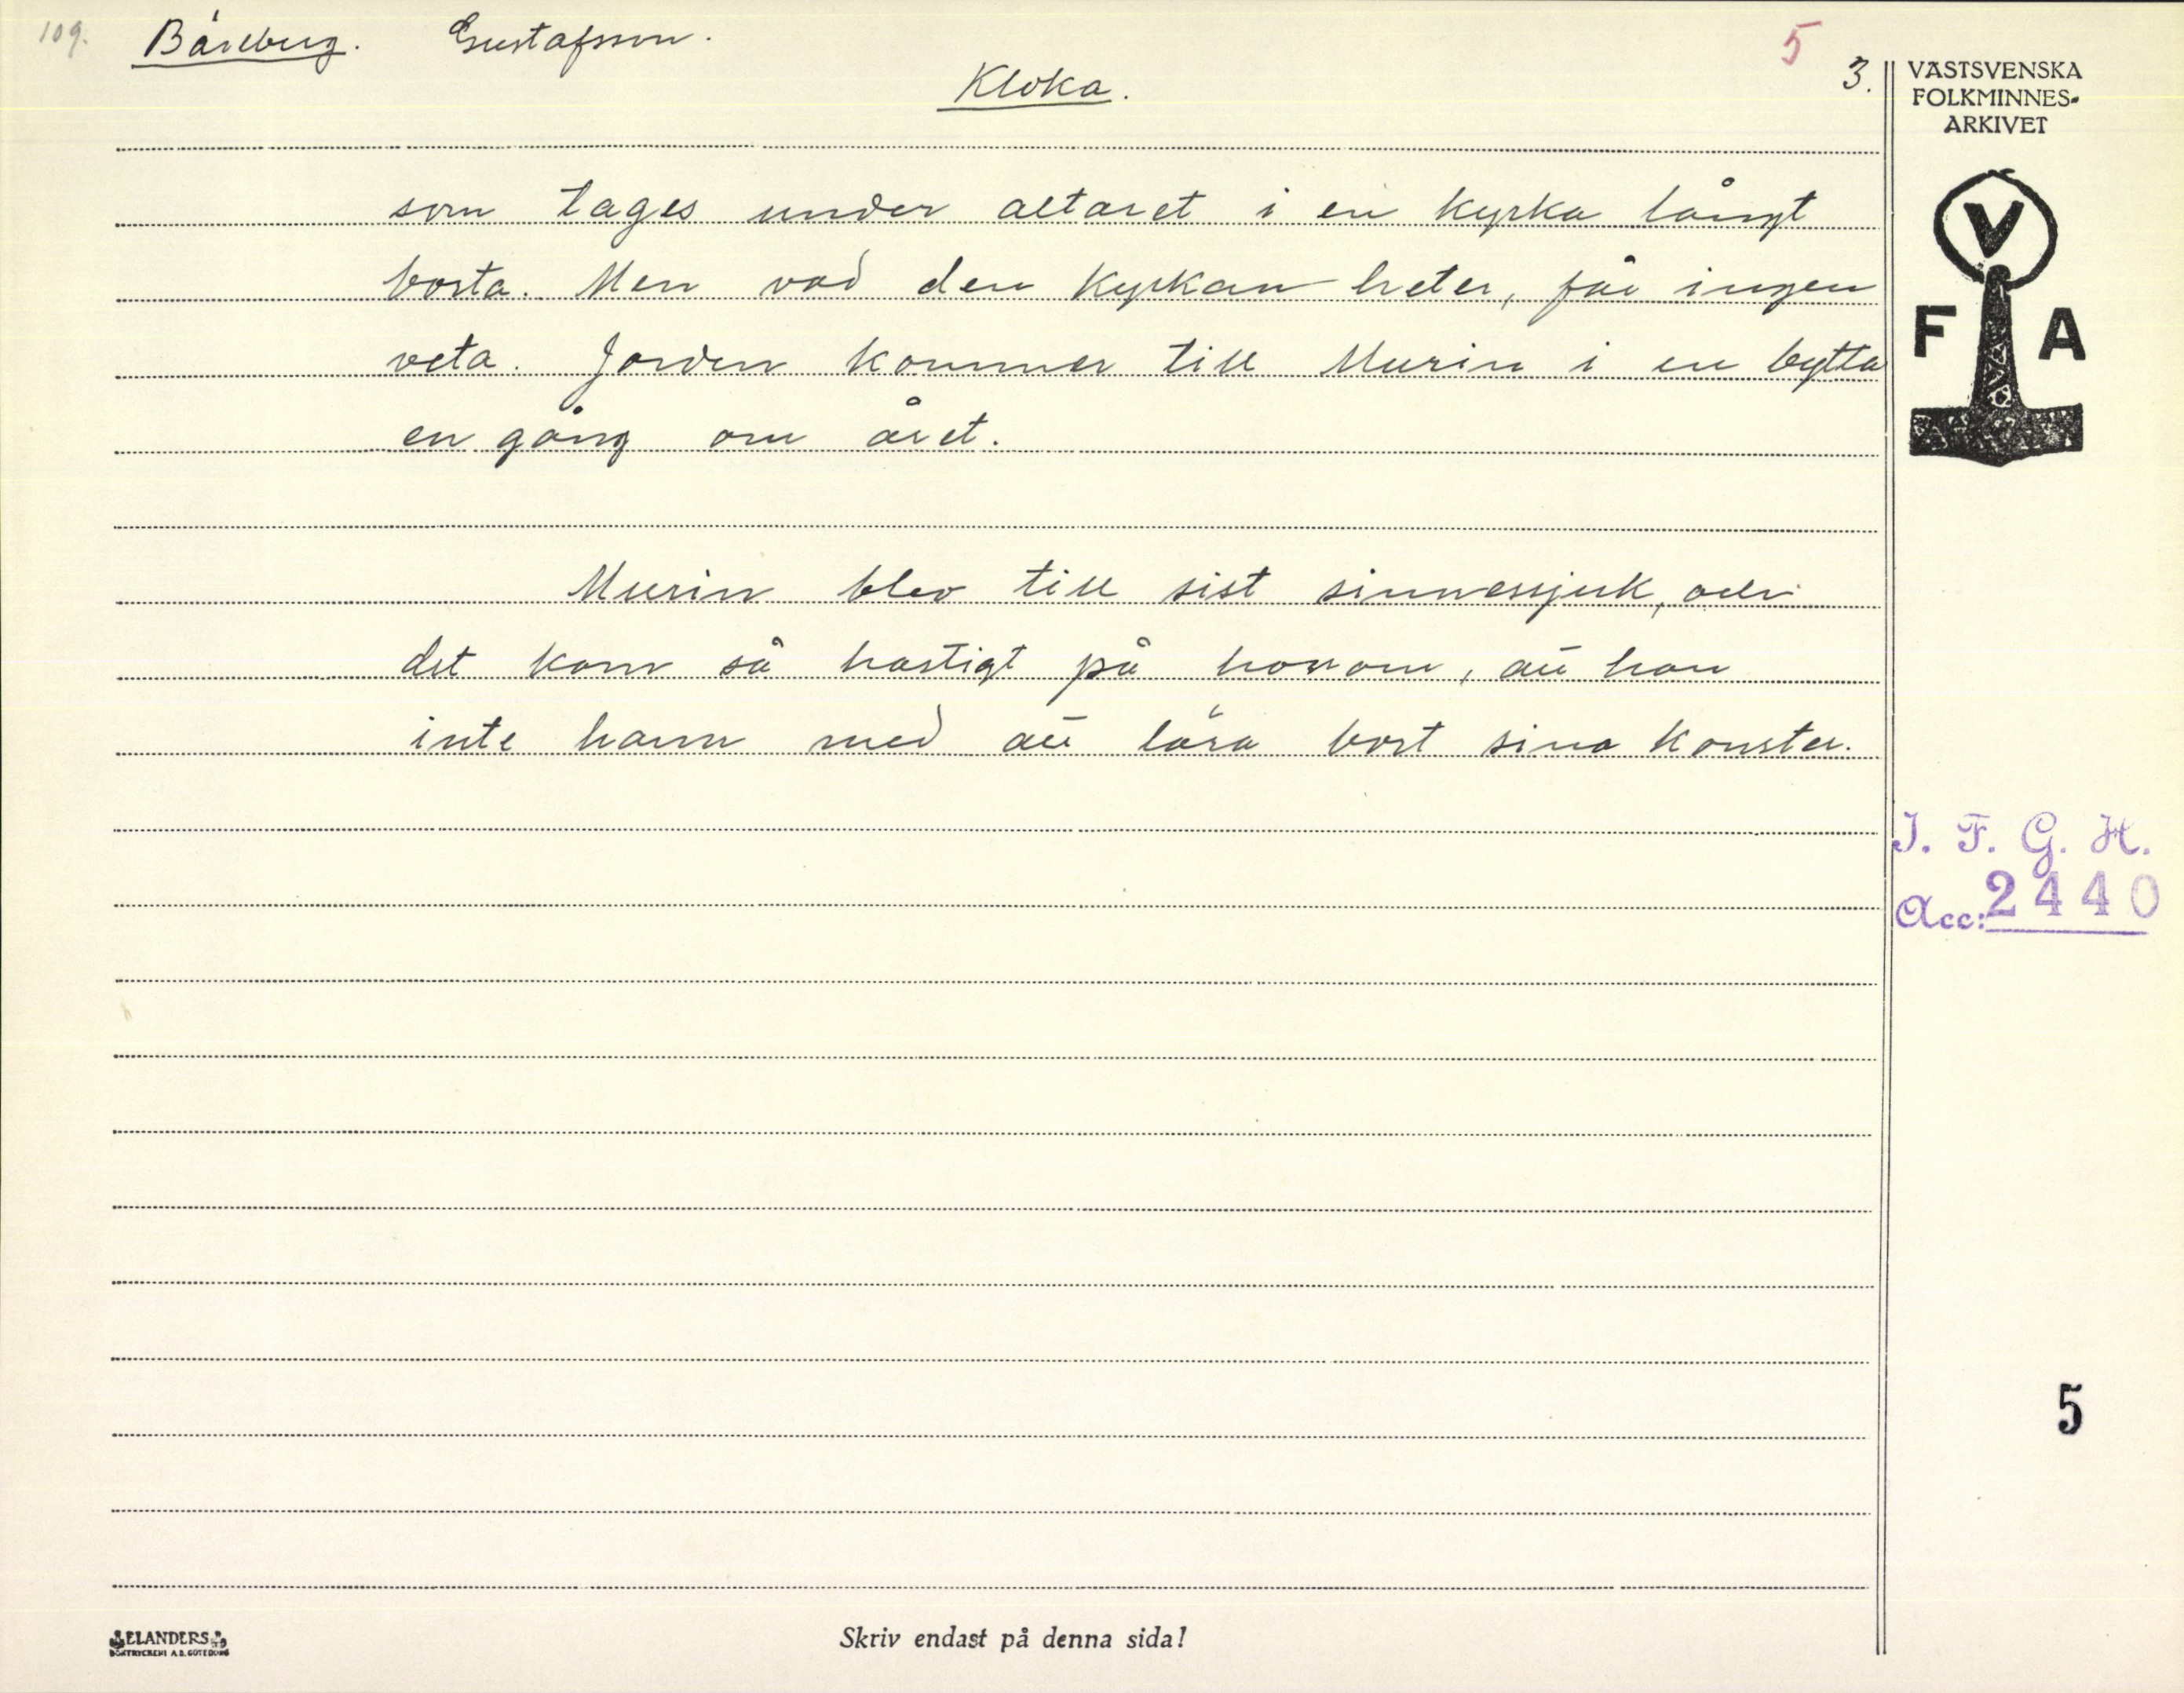 109. Båreberg. Gustafsson. 5
Kloka. 3.
VÄSTSVENSKA
FOLKMINNES-
ARKIVET
V
F A
som tages under altaret i en kyrka långt
borta. Men vad den kyrkan heter, får ingen
veta. Jorden kommer till Murin i en bytta
en gång om året.
Murin blev till sist sinnessjuk, och
det kom så hastigt på honom, att han
inte hann med att lära bort sina konster.
I. F. G. H.
Acc: 2440
5
ELANDERS
BOKTRYCKERI A.B. GÖTEBORG
Skriv endast på denna sida!